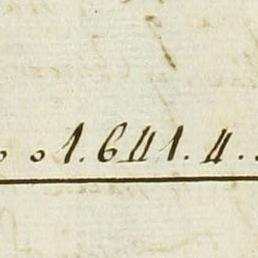 o o1.641.4.